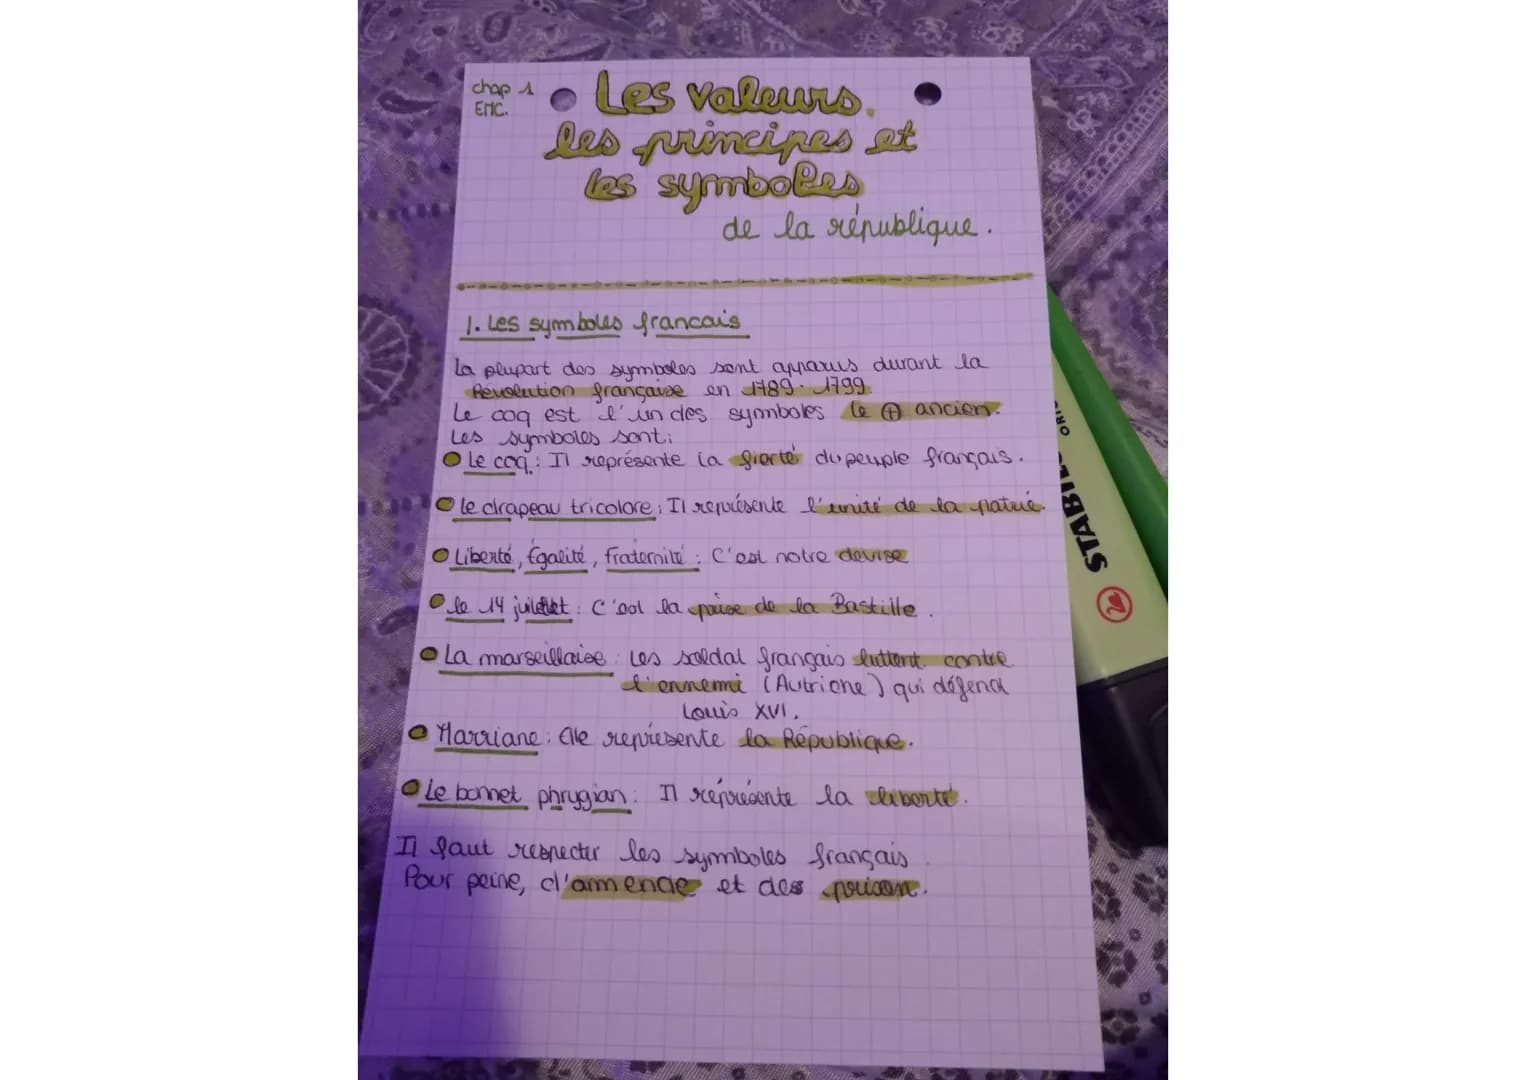 chap 1
EMC.
Les valeurs,
les principes et
les symboles
de la république.
1. Les symboles francais
La plupart des symboles sont apparus durant la
Révolution française en 1789-1799
Le coq est l'un des symboles le ⊕ ancien.
Les symboles sont:
Le coq: Il représente la fierté du peuple français.
Le drapeau tricolore: Il représente l'unité de la patrie.
Liberté, Égalité, Fraternité: C'est notre devise
le 14 juillet: C'est la prise de la Bastille.
La marseillaise: Les soldat français luttent contre
l'ennemi (Autriche) qui défend
Louis XVI.
Marriane: Elle représente la République.
Le bonnet phrygian: Il réprésente la liberté.
Il faut respecter les symboles français
Pour peine, d'amende et des prison.
STABIL
ORIG